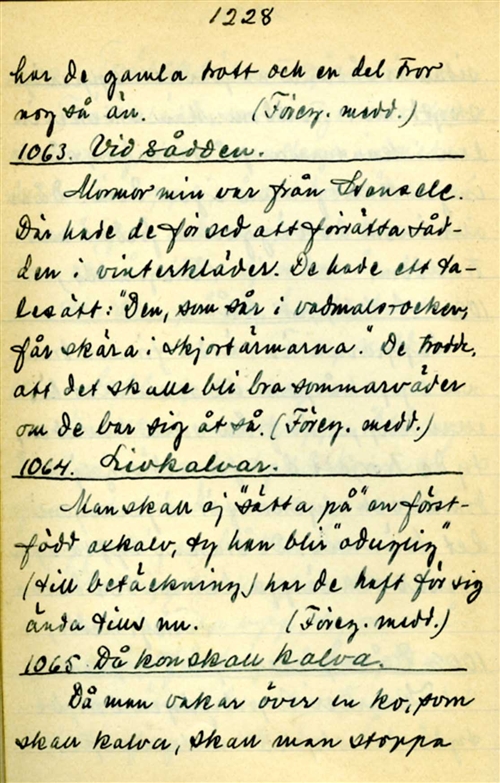 1228
har de gamla trott och en del tror
nog så än. (Föreg. medd.)
1063. Vid sådden.
Mormor min var från Stensele.
Där hade de för sed att förrätta såd-
den i vinterkläder. De hade ett ta-
lesätt: "Den, som sår i vadmalsrocken,
får skära i skjortärmarna." De trodde,
att det skulle bli bra sommarväder
om de bar sig åt så. (Föreg. medd.)
1064. Livkalvar.
Man skall ej "sätta på" en först-
född oxkalv, ty han blir "oduglig"
(till betäckning) har de haft för sig
ända tills nu. (Föreg. medd.)
1065. Då kon skall kalva.
Då man vakar över en ko, som
skall kalva, skall man stoppa